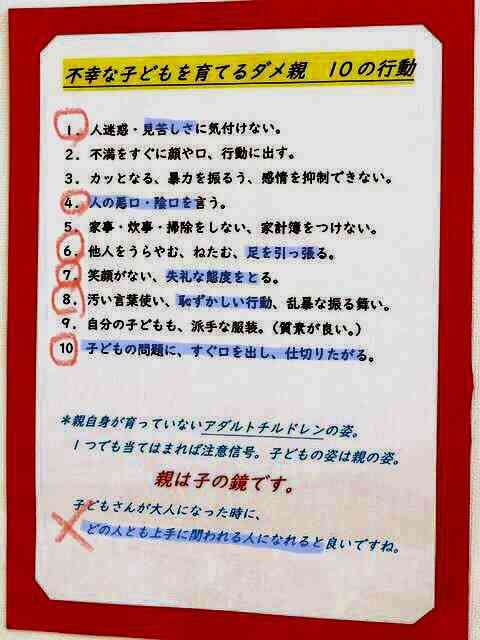 不幸な子どもを育てるダメ親　10の行動
1．人迷惑・見苦しさに気付けない。
2．不満をすぐに顔や口、行動に出す。
3．カッとなる、暴力を振るう、感情を抑制できない。
4．人の悪口・陰口を言う。
5．家事・炊事・掃除をしない、家計簿をつけない。
6．他人をうらやむ、ねたむ、足を引っ張る。
7．笑顔がない、失礼な態度をとる。
8．汚い言葉使い、恥ずかしい行動、乱暴な振る舞い。
9．自分の子どもも、派手な服装。（質素が良い。）
10 子どもの問題に、すぐ口を出し、仕切りたがる。
＊親自身が育っていないアダルトチルドレンの姿。
1つでも当てはまれば注意信号。子どもの姿は親の姿。
親は子の鏡です。
子どもさんが大人になった時に、
どの人とも上手に関われる人になれると良いですね。